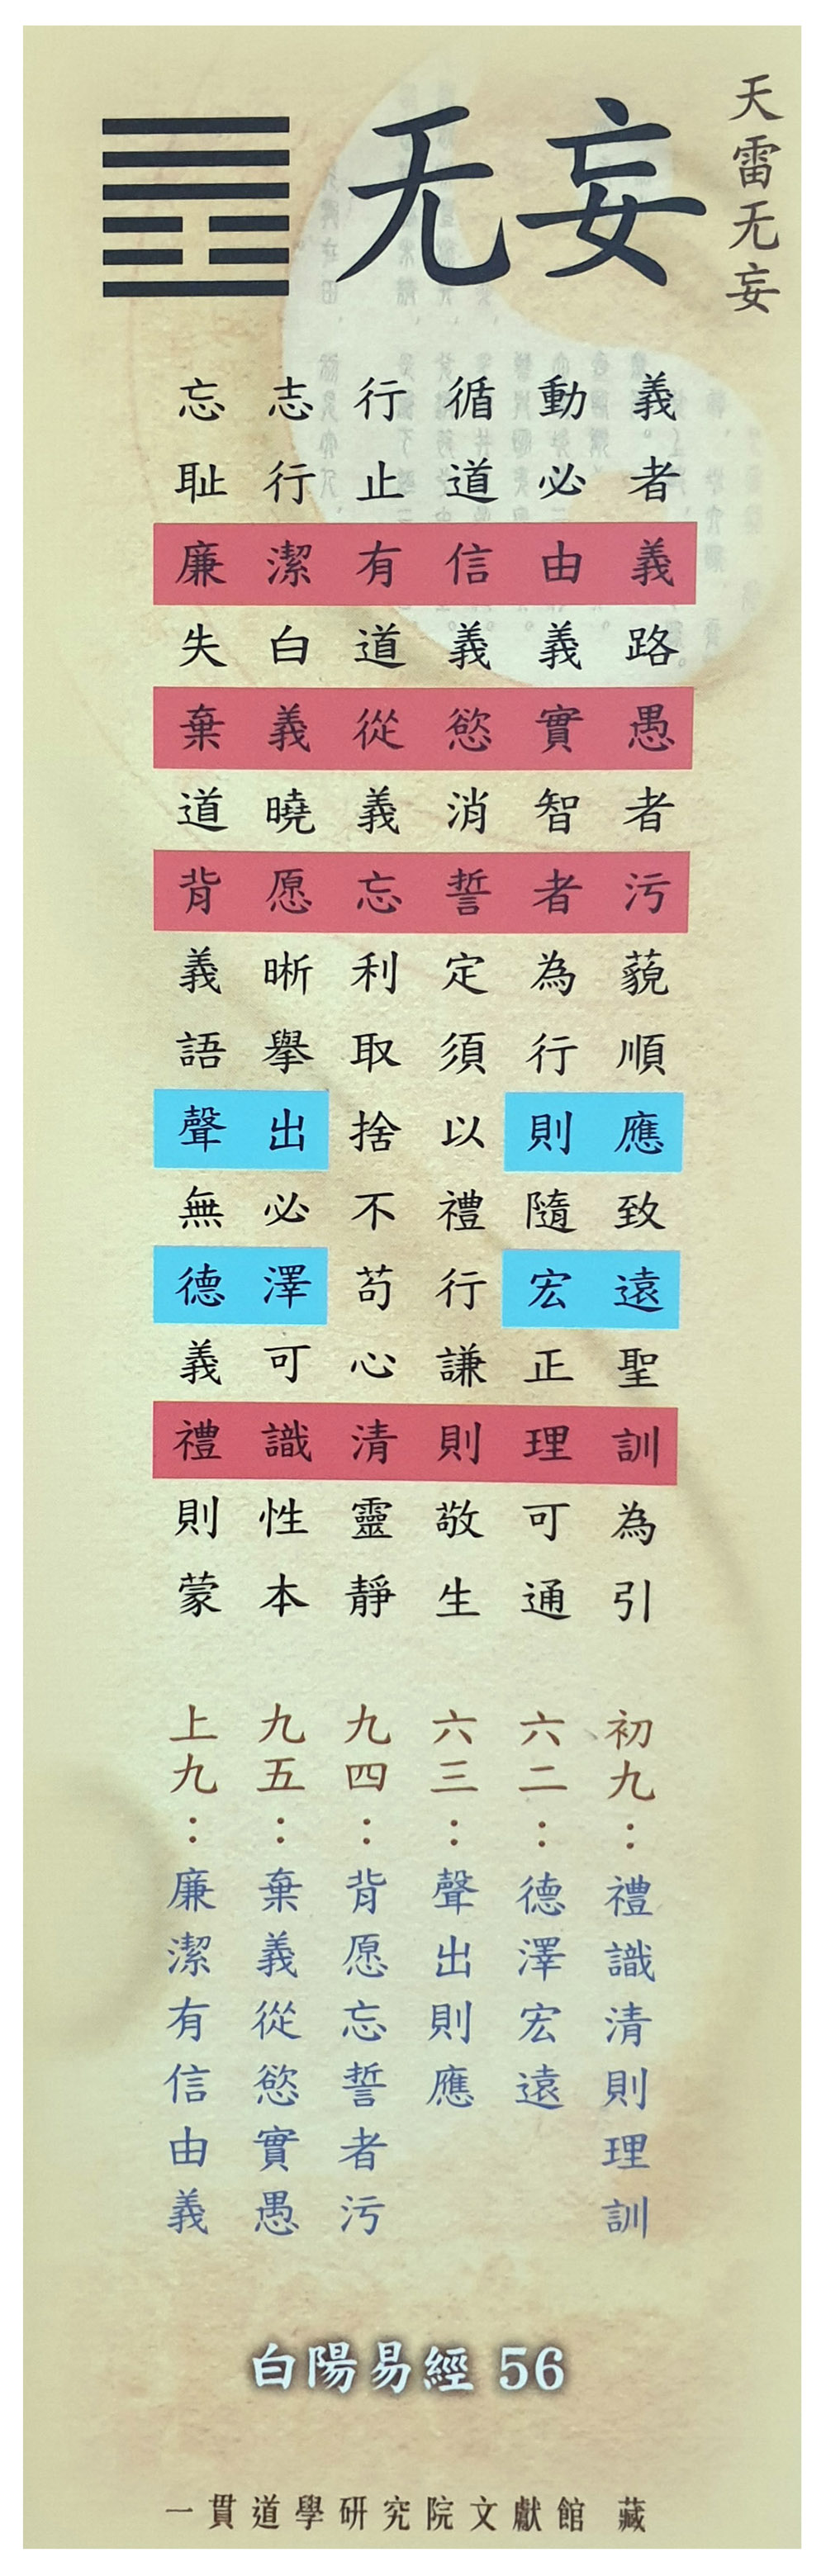 天雷无妄
无妄
義者義路愚者污藐順應致遠聖訓為引
動必由義實智者為行則隨宏正理可通
循道信義慾消誓定須以禮行謙則敬生
行止有道從義忘利取捨不苟心清靈靜
志行潔白義曉愿晰舉出必澤可識性本
忘耻廉失棄道背義語聲無德義禮則蒙
初九：禮識清則理訓
六二：德澤宏遠
六三：聲出則應
九四：背愿忘誓者污
九五：棄義從慾實愚
上九：廉潔有信由義
白陽易經 56
一貫道學研究院文獻館 藏